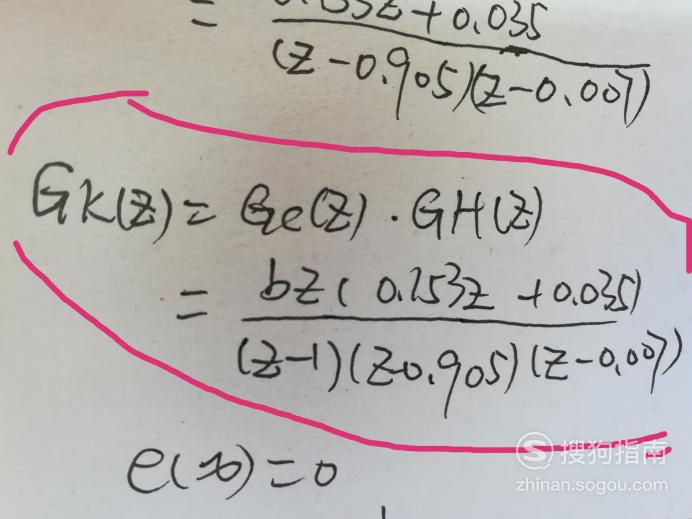 = 0.153z + 0.035
(z-0.905)(z-0.007)
GK(z) = Gc(z) · GH(z)
= bz( 0.153z + 0.035)
(z-1)(z-0.905)(z-0.007)
e(∞) = 0
搜狗指南
zhinan.sogou.com